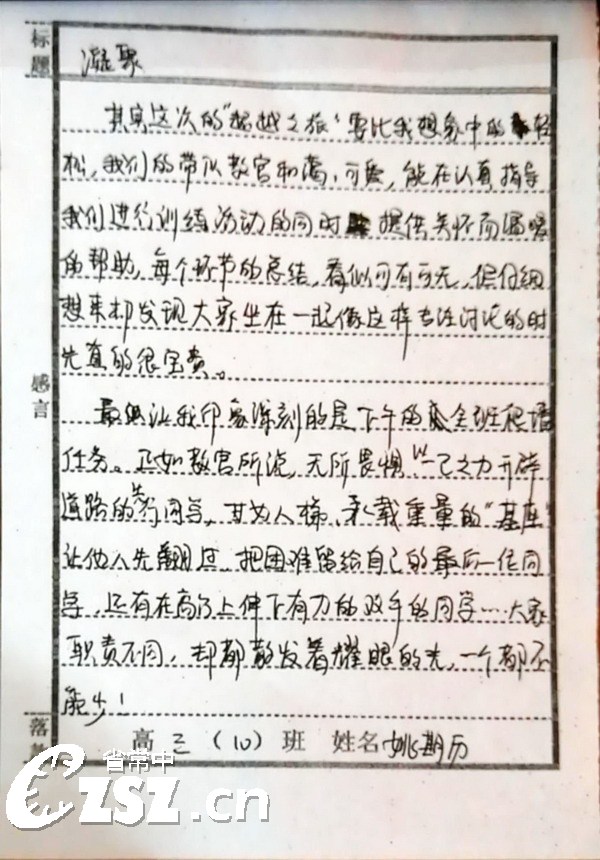 标题
凝聚
其实这次的“超越之旅”要比我想象中的轻
松，我们的带队教官和蔼、可爱，能在认真指导
我们进行训练活动的同时 提供关怀而温暖
的帮助，每个环节的总结，看似可有可无，但仔细
想来却发现大家坐在一起像这样专注讨论的时
光真的很宝贵。
感言
最让我印象深刻的是下午的全班爬墙
任务。正如教官所说，无所畏惧以一己之力开辟
道路的先行同学，甘为人梯、承载重量的“基座”
让他人先翻过，把困难留给自己的最后一位同
学，还有在高多上伸下有力的双手的同学……大家
职责不同，却都散发着耀眼的光，一个都不
能少！
落款
高 三 （10） 班 姓名 姚期历
省常中
CZSZ.cn